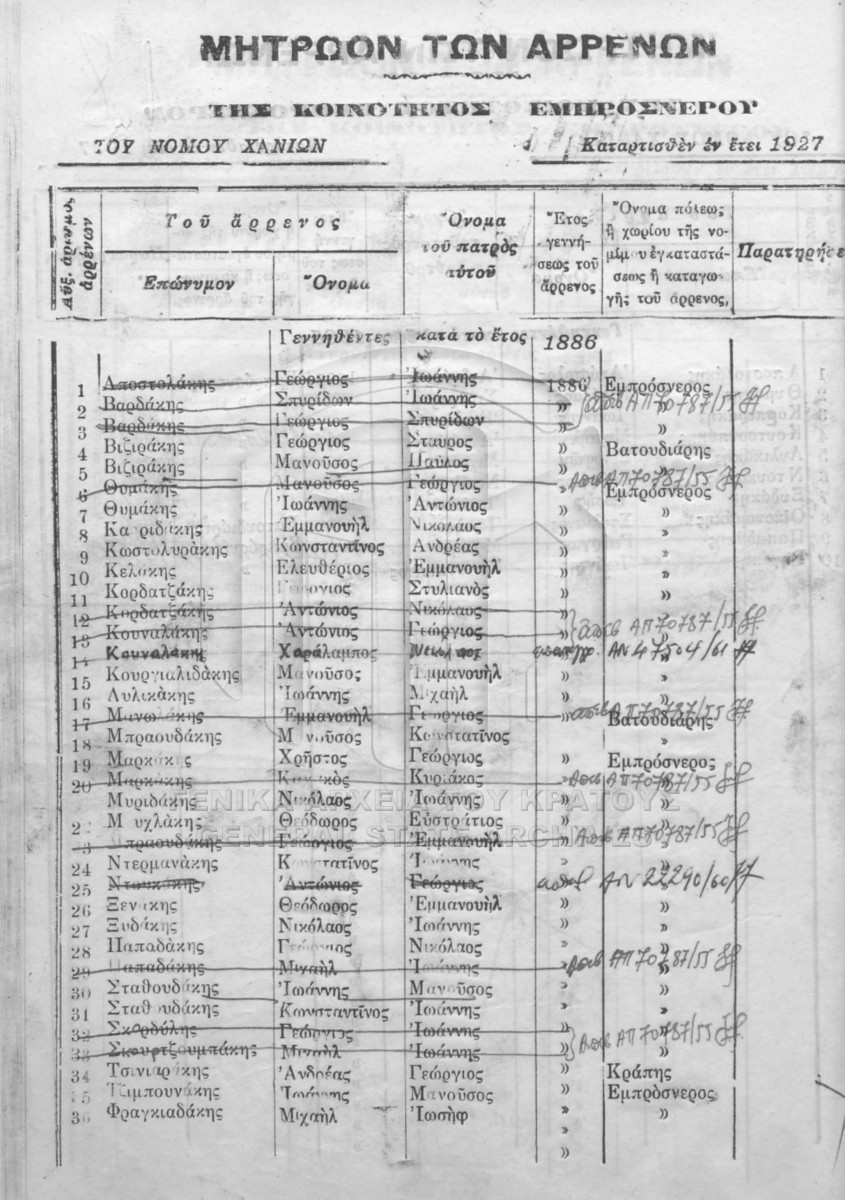 ΜΗΤΡΩΟΝ ΤΩΝ ΑΡΡΕΝΩΝ
ΤΗΣ ΚΟΙΝΟΤΗΤΟΣ ΕΜΠΡΟΣΝΕΡΟΥ
ΤΟΥ ΝΟΜΟΥ ΧΑΝΙΩΝ Καταρτισθὲν ἐν ἔτει 1927
Αὔξ. ἀριθμὸς ἀρρένων
Τοῦ ἄρρενος
Ἐπώνυμον Ὄνομα
Ὄνομα
τοῦ πατρὸς
αὐτοῦ
Ἔτος
γεννή-
σεως τοῦ
ἄρρενος
Ὄνομα πόλεως
ἢ χωρίου τῆς νο-
μίμου ἐγκαταστά-
σεως ἢ καταγω-
γῆς τοῦ ἄρρενος,
Παρατηρήσε
Γεννηθέντες κατὰ τὸ ἔτος 1886
1 Ἀποστολάκης Γεώργιος Ἰωάννης 1886 Ἐμπρόσνερος
2 Βαρδάκης Σπυρίδων Ἰωάννης » » ΑΠ 70787/55
3 Βαρδάκης Γεώργιος Σπυρίδων » »
4 Βιζιράκης Γεώργιος Σταυρος » Βατουδιάρης
5 Βιζιράκης Μανοῦσος Παῦλος »
6 Θυμάκης Μανοῦσος Γεώργιος » Ἐμπρόσνερος ΑΠ 70787/55
7 Θυμάκης Ἰωάννης Ἀντώνιος » »
8 Καυριδάκης Ἐμμανουὴλ Νικόλαος » »
9 Κωστολυράκης Κωνσταντῖνος Ἀνδρέας » »
10 Κελάκης Ἐλευθέριος Ἐμμανουὴλ » »
11 Κορδατζάκης Γεώργιος Στυλιανὸς » »
12 Κορδατζάκης Ἀντώνιος Νικόλαος » »
13 Κουναλάκης Ἀντώνιος Γεώργιος » » ΑΠ 70787/55
14 Κουναλάκης Χαράλαμπος ΑΝ 47504/61
15 Κουργιαλιδάκης Μανοῦσος Ἐμμανουὴλ » »
16 Λυλικάκης Ἰωάννης Μιχαὴλ » »
17 Μανωλάκης Ἐμμανουὴλ Γεώργιος » Βατουδιάρης ΑΠ 70787/55
18 Μπραουδάκης Μανοῦσος Κωνσταντῖνος »
19 Μαρκάκης Χρῆστος Γεώργιος » Ἐμπρόσνερος
20 Μαρκάκης Κυριάκος » ΑΠ 70787/55
Μυριδάκης Νικόλαος Ἰωάννης » »
2 Μ υχλάκης Θεόδωρος Εὐστράτιος » »
3 Μπραουδάκης Γεώργιος Ἐμμανουὴλ » ΑΠ 70787/55
24 Ντερμανάκης Κωνσταντῖνος Ἰωάννης » »
25 Ντουκάκης Ἀντώνιος Γεώργιος ΑΝ 22290/60
26 Ξενάκης Θεόδωρος Ἐμμανουὴλ » »
27 Ξυδάκης Νικόλαος Ἰωάννης » »
28 Παπαδάκης Γεώργιος Νικόλαος » »
29 Παπαδάκης Μιχαὴλ Ἰωάννης » » ΑΠ 70787/55
30 Σταθουδάκης Ἰωάννης Μανοῦσος » »
31 Σταθουδάκης Κωνσταντῖνος Ἰωάννης » »
32 Σκορδύλης Γεώργιος Ἰωάννης » »
33 Σκουρτζουμπάκης Μιχαὴλ Ἰωάννης » » ΑΠ 70787/55
34 Τσινιαράκης Ἀνδρέας Γεώργιος » Κράπης
35 Τζιμπουνάκης Ἰωάννης Μανοῦσος » Ἐμπρόσνερος
36 Φραγκιαδάκης Μιχαὴλ Ἰωσὴφ » »
ΓΕΝΙΚΑ ΑΡΧΕΙΑ ΤΟΥ ΚΡΑΤΟΥΣ
GENERAL STATE ARCHIVES